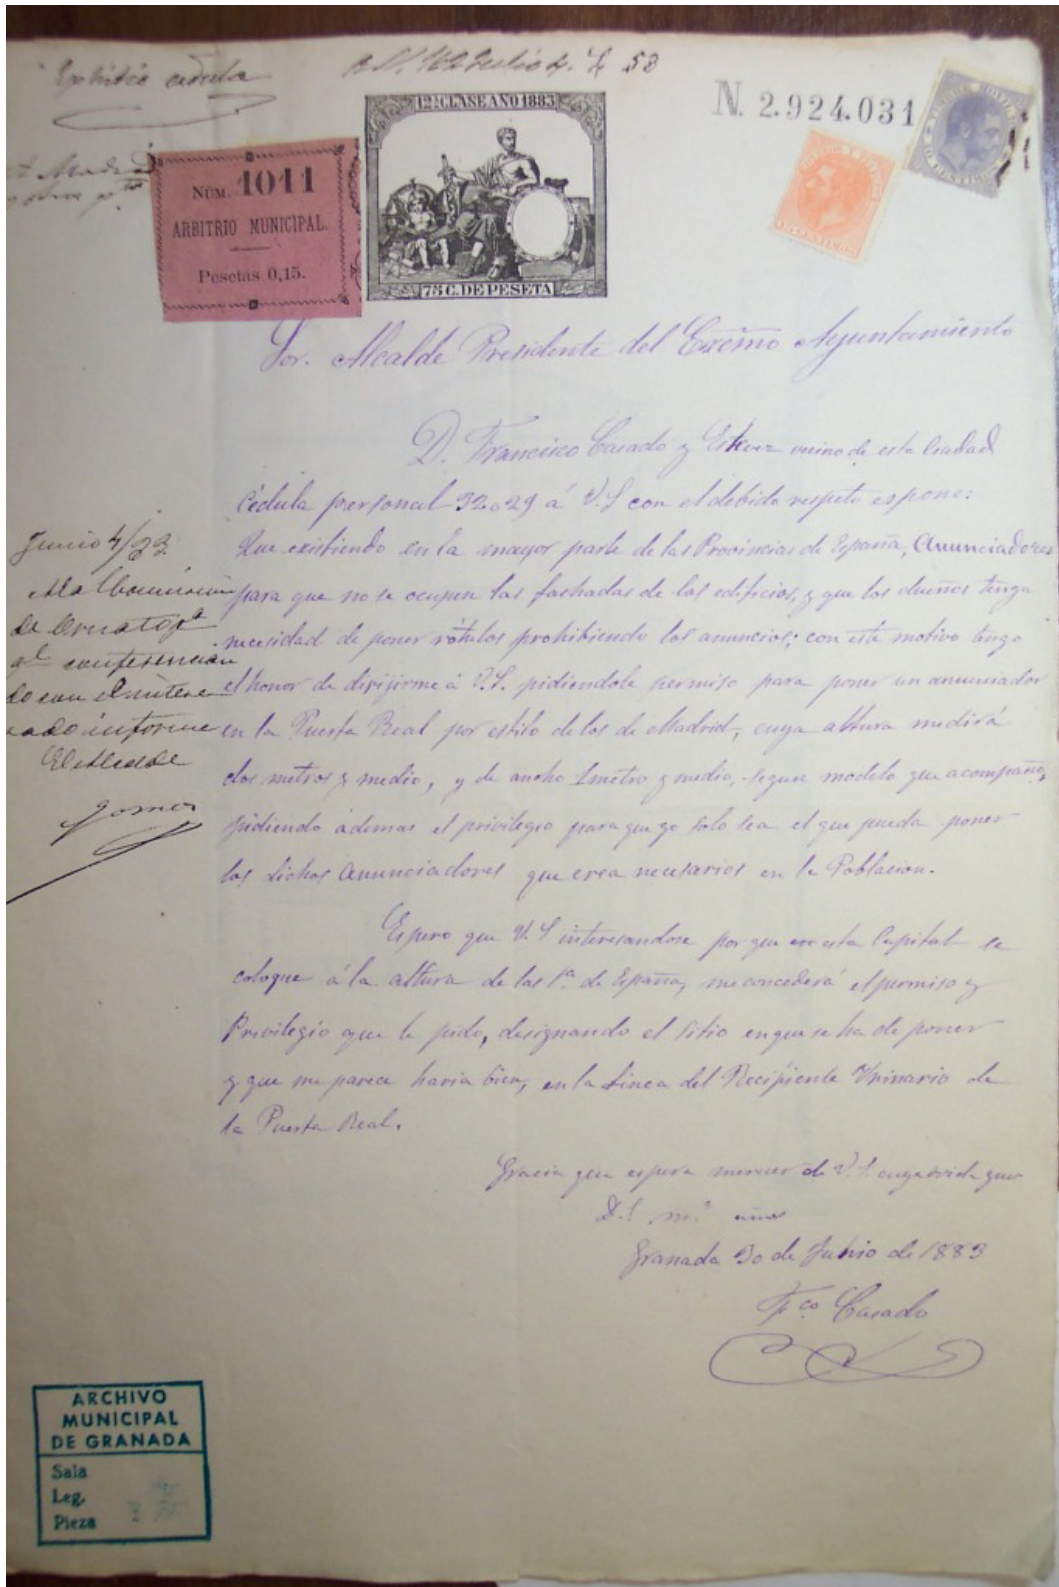 Exhibió cedula
N. 2.924.031
12ª CLASE AÑO 1883
75 C. DE PESETA
NÚM. 1011
ARBITRIO MUNICIPAL.
Pesetas 0,15.
Sor. Alcalde Presidente del Excmo Ayuntamiento
D. Francisco Casado y vecino de esta Ciudad
Cédula personal á V.S con el debido respeto espone:
Que existiendo en la mayor parte de las Provincias de España, Anunciadores
para que no se ocupen las fachadas de los edificios, y que los dueños tenga
necesidad de poner rótulos prohibiendo los anuncios; con este motivo tengo
el honor de dirijirme á V.S. pidiendole permiso para poner un anunciador
en la Puerta Real por estilo de los de Madrid, cuya altura medirá
dos metros y medio, y de ancho 1 metro y medio, segun modelo que acompaño,
pidiendo ademas el privilegio para que yo solo sea el que pueda poner
los dichos Anunciadores que crea necesarios en la Poblacion.
Espero que V.S interesandose por que esta Capital se
coloque á la altura de las 1ª de España, me concederá el permiso y
Privilegio que le pido, designando el sitio en que se ha de poner
y que me parece haria bien, en la Linea del Recipiente Urinario de
la Puerta Real.
Gracia que espera merecer de V.S. cuya vida gue
D.s m.s años
Granada 30 de Junio de 1883
Fco Casado
Junio 4/83
A la Comision
de Ornato pª
qe conferencian
do con el intere
sado informe
El Alcalde
Gomez
ARCHIVO
MUNICIPAL
DE GRANADA
Sala
Leg.
Pieza